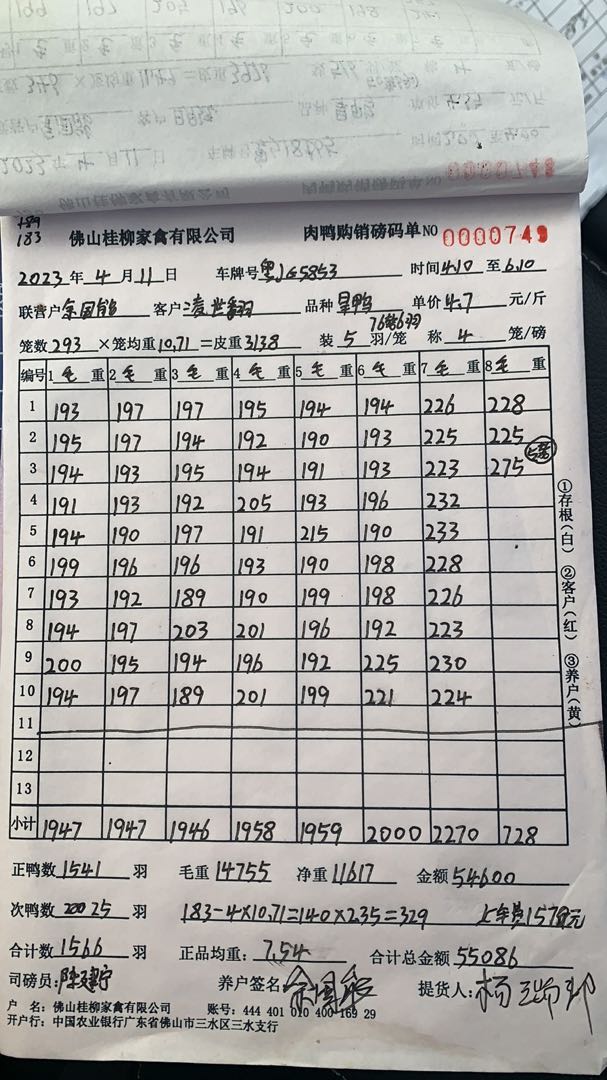 189
183
佛山桂柳家禽有限公司 肉鸭购销磅码单 NO 0000749
2023 年 4 月 11 日 车牌号 粤JG5853 时间 4.10 至 6.10
联营户 余国能 客户 凌世 品种 旱鸭 单价 4.7 元/斤
76笼6羽
笼数 293 ×笼均重 10.71 =皮重 3138 装 5 羽/笼 称 4 笼/磅
编号 1 毛 重 2 毛 重 3 毛 重 4 毛 重 5 毛 重 6 毛 重 7 毛 重 8 毛 重
1 193 197 197 195 194 194 226 228
2 195 197 194 192 190 193 225 225
3 194 193 195 194 191 193 223 275 5笼
4 191 193 192 205 193 196 232
5 194 190 197 191 215 190 233
6 199 196 196 193 190 198 228
7 193 192 189 190 199 198 226
8 194 197 203 201 196 192 223
9 200 195 194 196 192 225 230
10 194 197 189 201 199 221 224
11
12
13
小计 1947 1947 1946 1958 1959 2000 2270 728
①存根(白) ②客户(红) ③养户(黄)
正鸭数 1541 羽 毛重 14755 净重 11617 金额 54600
次鸭数 25 羽 183-4×10.71=140×2.35=329 上车费157元
合计数 1566 羽 正品均重: 7.54 合计总金额 55086
司磅员: 陈建宁 养户签名: 余国能 提货人: 杨
户 名: 佛山桂柳家禽有限公司 账号: 444 401 010 400 169 29
开户行: 中国农业银行广东省佛山市三水区三水支行